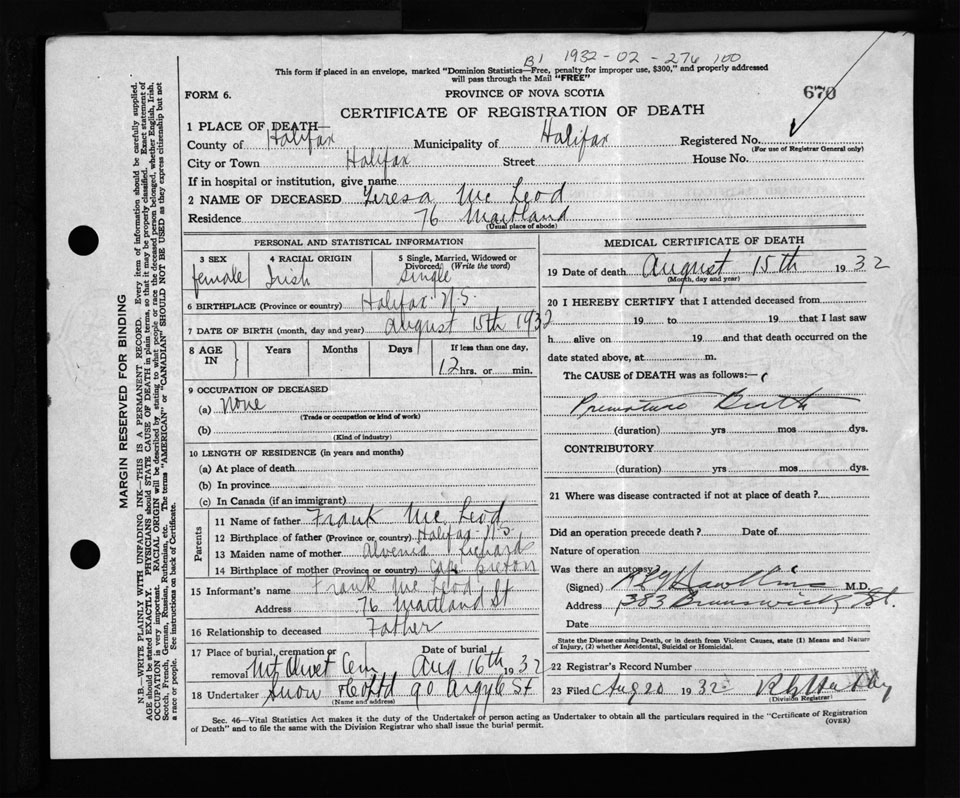 B1 1932-02-276100
This form if placed in an envelope, marked "Dominion Statistics—Free, penalty for improper use, $300," and properly addressed
will pass through the Mail "FREE"
FORM 6. PROVINCE OF NOVA SCOTIA 670
CERTIFICATE OF REGISTRATION OF DEATH
1 PLACE OF DEATH—
County of Halifax Municipality of Halifax Registered No.
(For use of Registrar General only)
City or Town Halifax Street House No.
If in hospital or institution, give name
2 NAME OF DECEASED Teresa Mc Leod
Residence 76 Maitland
(Usual place of abode)
PERSONAL AND STATISTICAL INFORMATION
3 SEX 4 RACIAL ORIGIN 5 Single, Married, Widowed or Divorced. (Write the word)
female Irish Single
6 BIRTHPLACE (Province or country) Halifax N.S.
7 DATE OF BIRTH (month, day and year) August 15th 1932
8 AGE IN Years Months Days If less than one day,
12 hrs. or min.
9 OCCUPATION OF DECEASED
(a) None
(Trade or occupation or kind of work)
(b)
(Kind of industry)
10 LENGTH OF RESIDENCE (in years and months)
(a) At place of death
(b) In province
(c) In Canada (if an immigrant)
Parents
11 Name of father Frank Mc Leod
12 Birthplace of father (Province or country) Halifax N.S.
13 Maiden name of mother Alvenia Richards
14 Birthplace of mother (Province or country) Cape Breton
15 Informant's name Frank Mc Leod
Address 76 Maitland St
16 Relationship to deceased Father
17 Place of burial, cremation or removal Mt Olivet Cem Date of burial Aug 16th 1932
18 Undertaker Snow & Co Ltd 90 Argyle St
(Name and address)
MEDICAL CERTIFICATE OF DEATH
19 Date of death August 15th 1932
(Month, day and year)
20 I HEREBY CERTIFY that I attended deceased from
19 to 19 that I last saw
h alive on 19 and that death occurred on the
date stated above, at m.
The CAUSE of DEATH was as follows:—
Premature Birth
(duration) yrs mos dys.
CONTRIBUTORY
(duration) yrs mos dys.
21 Where was disease contracted if not at place of death?
Did an operation precede death? Date of
Nature of operation
Was there an autopsy
(Signed) M.D.
Address 383 Brunswick St.
Date
State the Disease causing Death, or in death from Violent Causes, state (1) Means and Nature
of Injury, (2) whether Accidental, Suicidal or Homicidal.
22 Registrar's Record Number
23 Filed Aug 20 1932
(Division Registrar)
Sec. 46—Vital Statistics Act makes it the duty of the Undertaker or person acting as Undertaker to obtain all the particulars required in the "Certificate of Registration
of Death" and to file the same with the Division Registrar who shall issue the burial permit. (OVER)
MARGIN RESERVED FOR BINDING
N.B.—WRITE PLAINLY WITH UNFADING INK—THIS IS A PERMANENT RECORD. Every item of information should be carefully supplied.
AGE should be stated EXACTLY. PHYSICIANS should STATE CAUSE OF DEATH in plain terms, so that it may be properly classified. Exact statement of
OCCUPATION is very important. RACIAL ORIGIN will be described by stating to what people or race the deceased person belonged, whether English, Irish,
Scotch, French, German, Russian, Ruthenian, etc. The terms "AMERICAN" or "CANADIAN" SHOULD NOT BE USED as they express citizenship but not
a race or people. See instructions on back of Certificate.